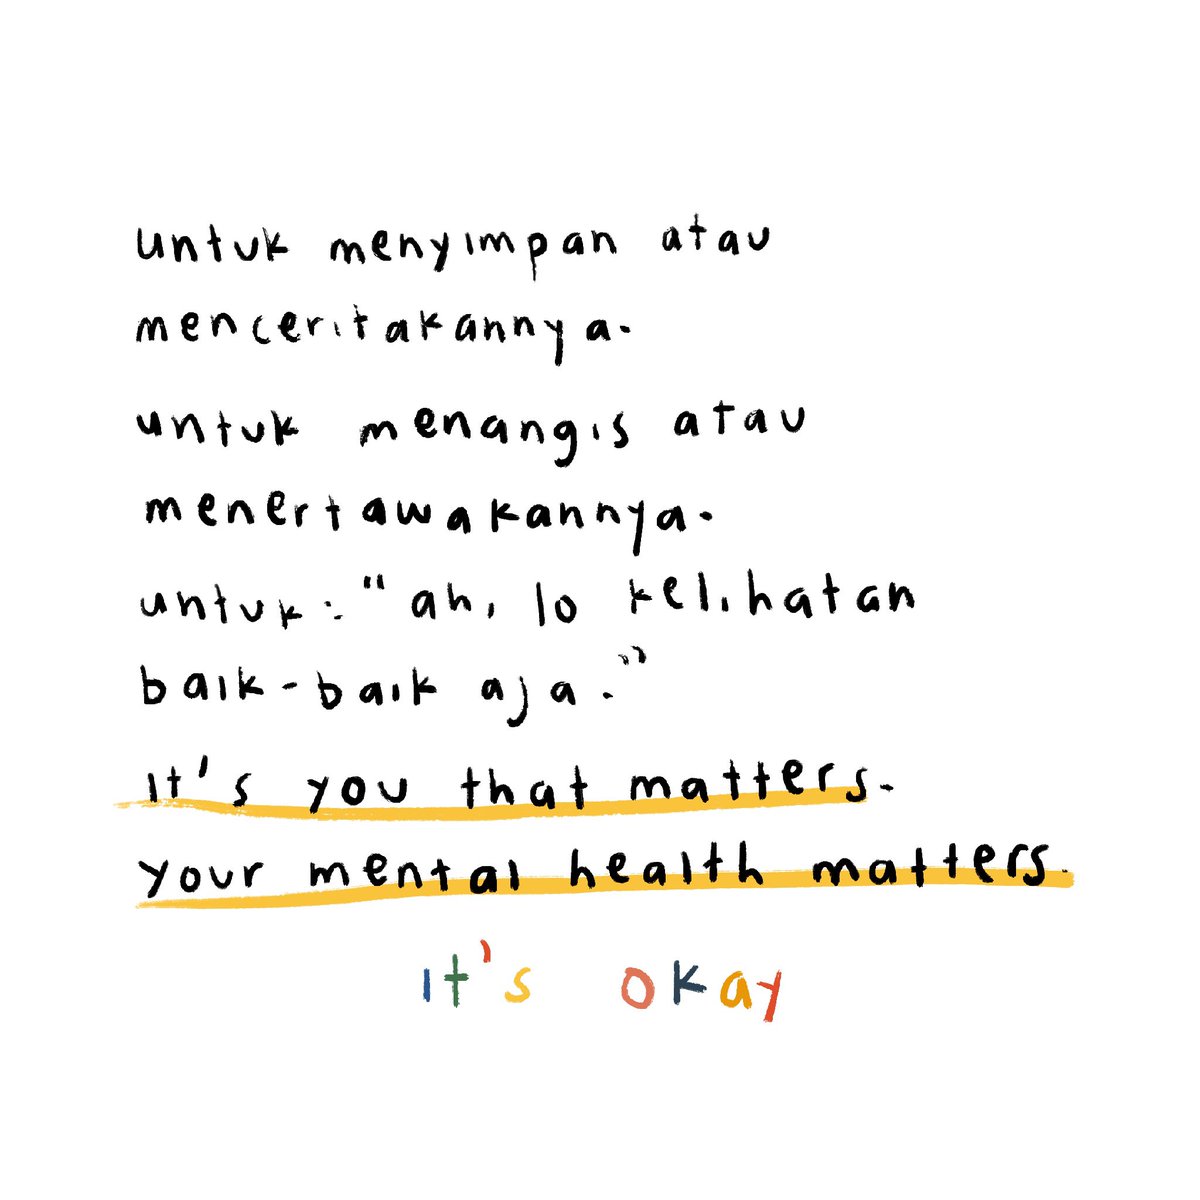 untuk menyimpan atau
menceritakannya.
untuk menangis atau
menertawakannya.
untuk: "ah, lo kelihatan
baik-baik aja."
it's you that matters.
your mental health matters.
it's okay